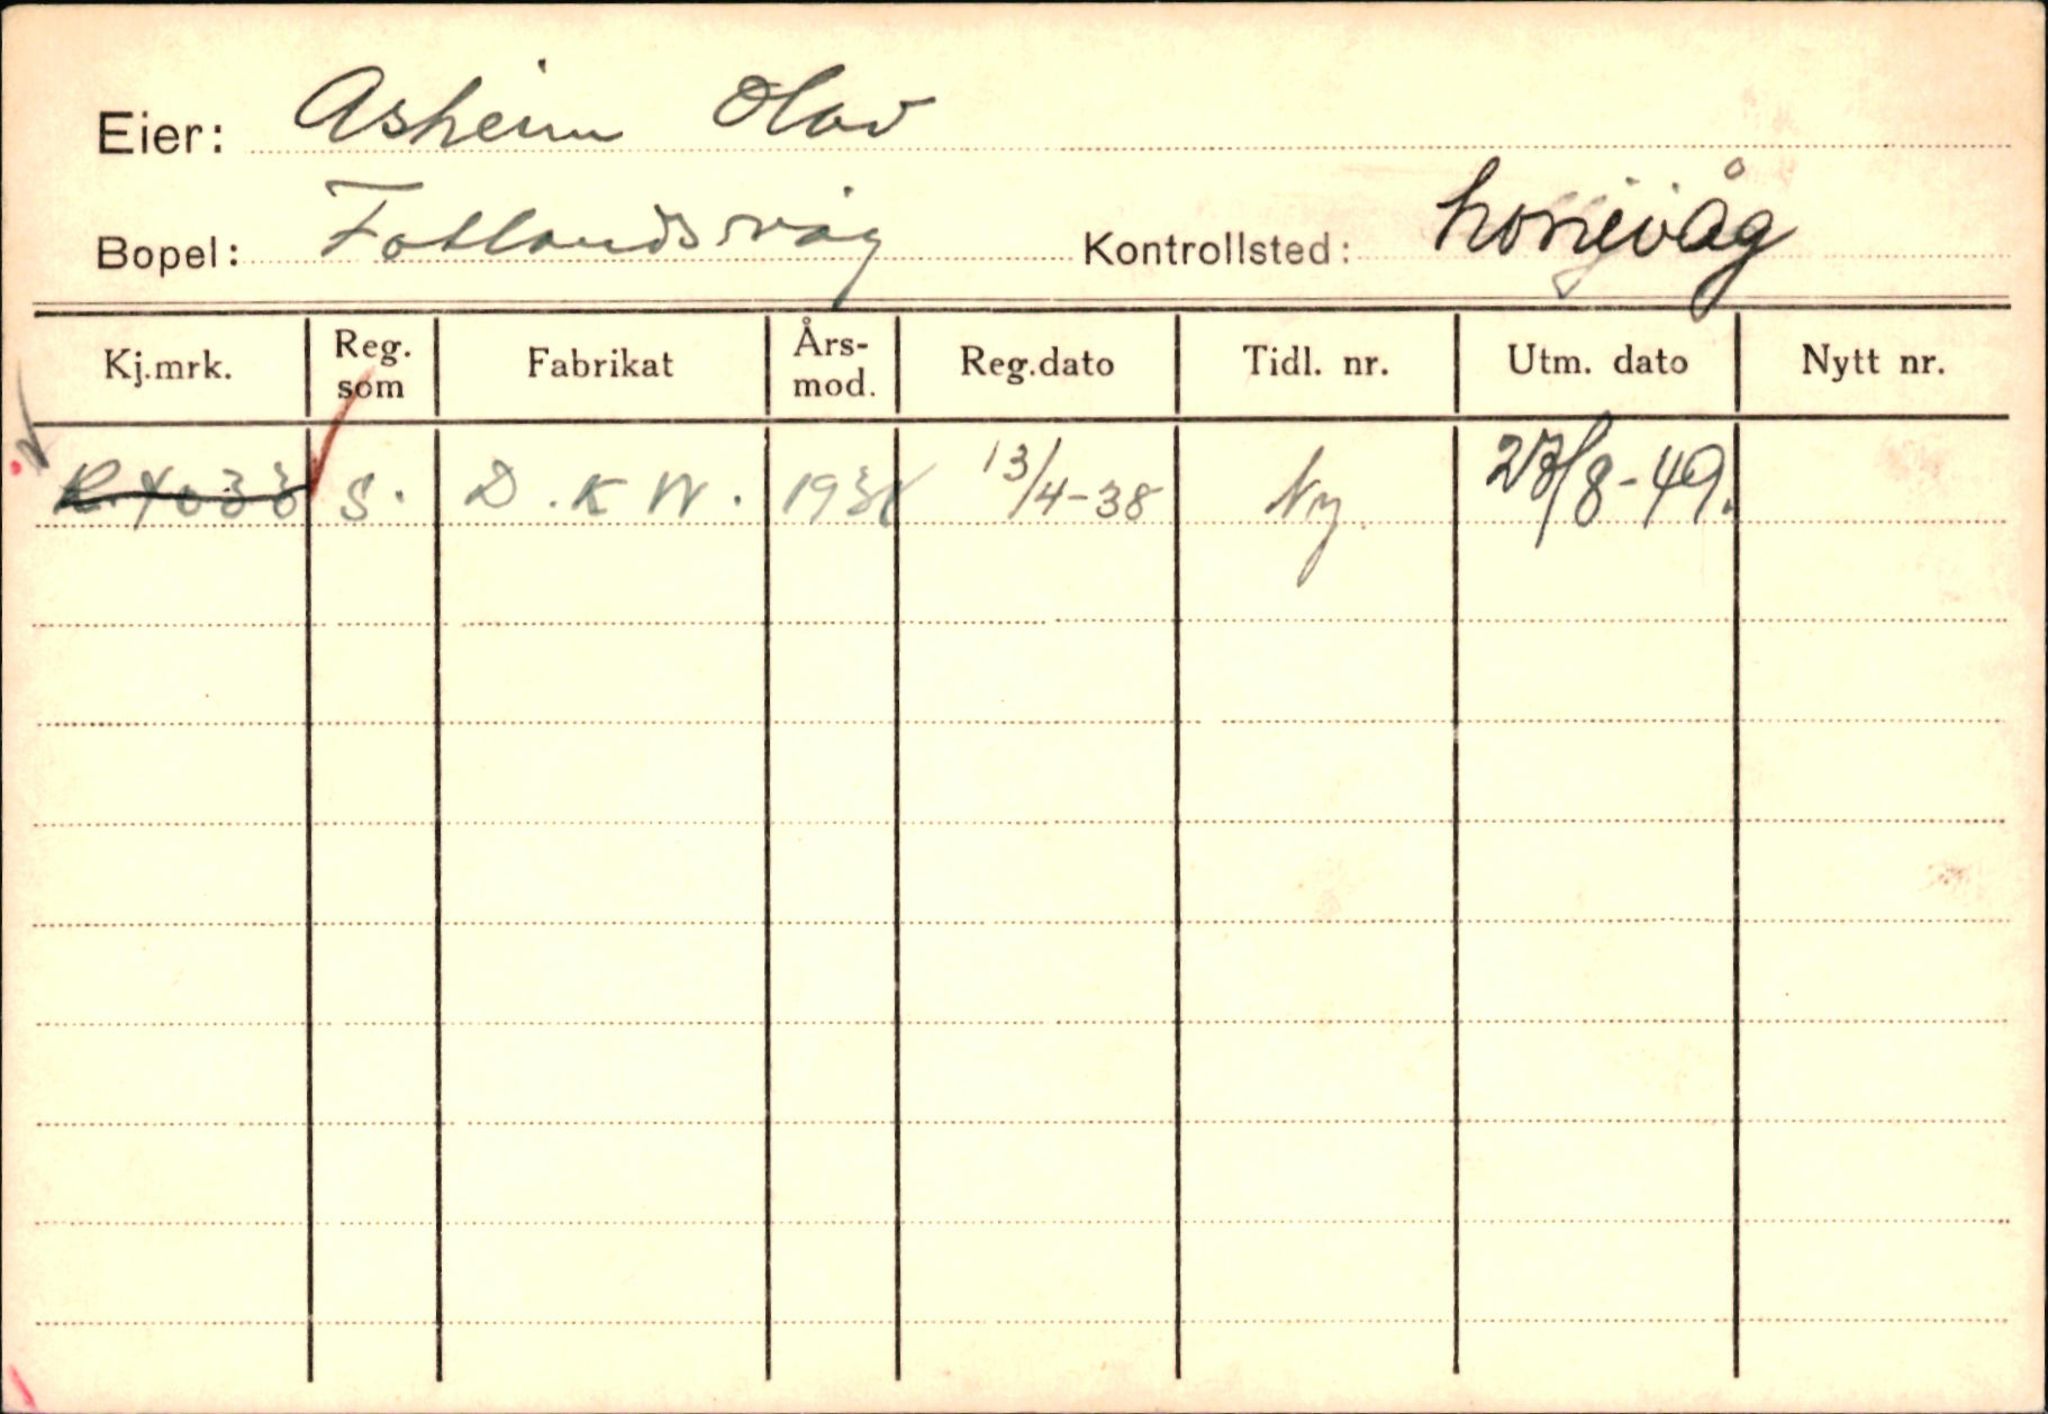 Eier: Asheim Olav
Bopel: Fotlandsvåg Kontrollsted: Lonevåg
Kj.mrk. Reg. som Fabrikat Års-mod. Reg.dato Tidl. nr. Utm. dato Nytt nr.
R. 4033 S. D.K.W. 13/4-38 Ny. 23/8-49.